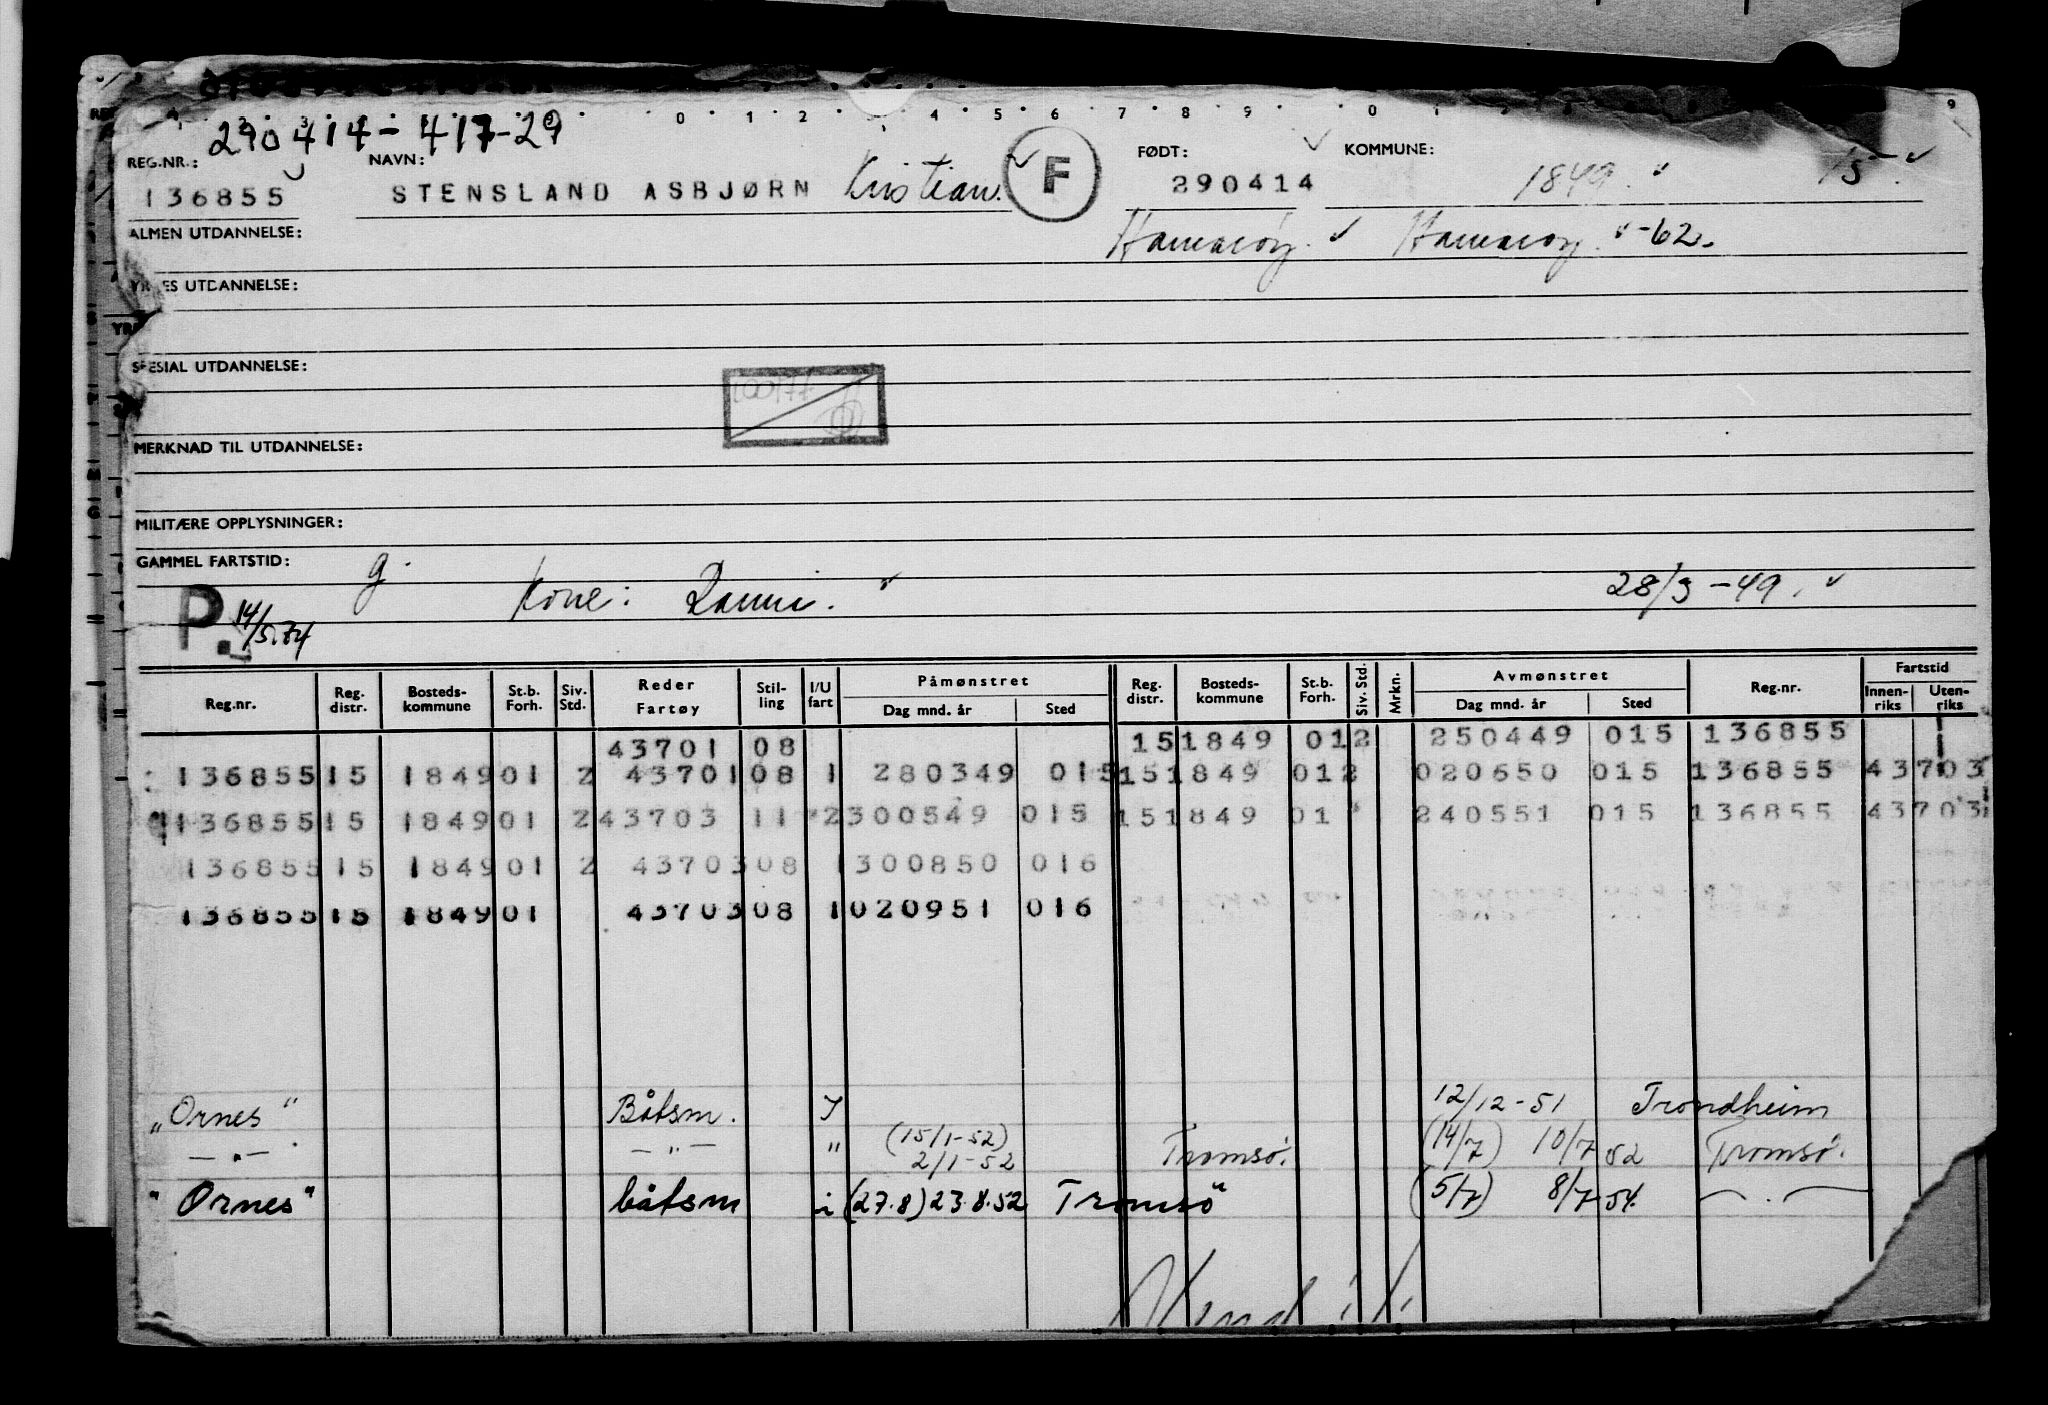 290414-417-29
REG.NR.: NAVN: F FØDT: KOMMUNE:
136855 STENSLAND ASBJØRN Kristian. 290414 1849. 15.
ALMEN UTDANNELSE: Hamarøy. Hamarøy. -62.
YRKES UTDANNELSE:
SPESIAL UTDANNELSE:
MERKNAD TIL UTDANNELSE:
MILITÆRE OPPLYSNINGER:
GAMMEL FARTSTID: g.
Kone: Ranni. 28/3-49.
P. 14/5.74
Reg.nr. Reg. distr. Bosteds-kommune St.b. Forh. Siv. Std. Reder Fartøy Stil-ling I/U fart Påmønstret Dag mnd. år Sted Reg. distr. Bosteds-kommune St.b. Forh. Siv. Std. Mrkn. Avmønstret Dag mnd. år Sted Reg.nr. Fartstid Innen-riks Uten-riks
43701 08 15 1849 01 2 250449 015 136855
136855 15 1849 01 2 43701 08 1 280349 015 15 1849 01 2 020650 015 136855 43703
136855 15 1849 01 2 43703 11 2 300549 015 15 1849 01 240551 015 136855 43703
136855 15 1849 01 2 43703 08 1 300850 016
136855 15 1849 01 43703 08 1 020951 016
"Ornes" Båtsm. I 12/12-51 Trondheim
—"— —"— " (15/1-52) 2/1-52 Tromsø. (14/7) 10/7 52 Tromsø.
"Ornes" båtsm i (27.8) 23.8.52 Tromsø (5/7) 8/7-54. —.—
Vend!